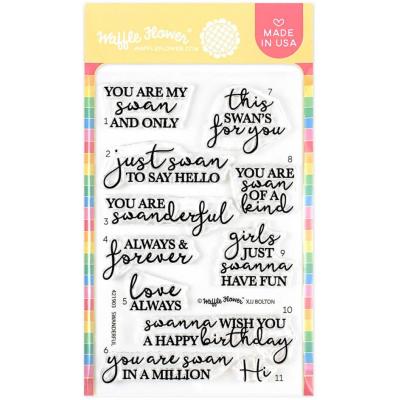 Waffle Flower®
WAFFLEFLOWER.COM
MADE
IN USA
YOU ARE MY
swan
1
AND ONLY
7
this
SWAN'S
for you
2
just swan
TO SAY HELLO
8
YOU ARE
swan
OF A
kind
YOU ARE
3
swanderful
4
ALWAYS &
forever
girls
JUST
9
swanna
HAVE FUN
5
love
ALWAYS
© Waffle Flower® XJJ BOLTON
10
swanna WISH YOU
A HAPPY birthday
6
you are swan
IN A MILLION
Hi
11
421903 SWANDERFUL